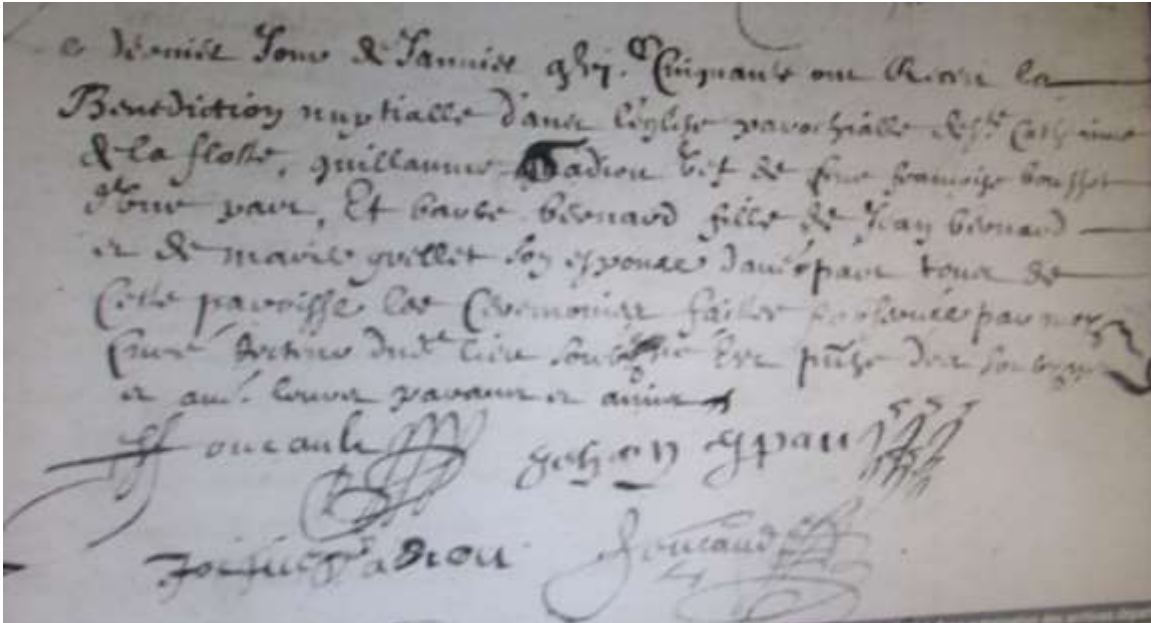 e dernier Jour de Janvier gbj.^c Cinquante ont Receu la
Benediction nuptialle dans l'eglise parochialle de s^te Catherine
de la flotte, guillaume Padiou vef de feue francoise bousset
d'une part, Et barbe bernard fille de Jean bernard
et de marie grellet son espouse d'autre part tous de
Cette paroisse les Ceremonies faites par moy
Curé dud^t lieu
et aud. leurs parans et amis
ffoucault gehan
Padiou foucaud